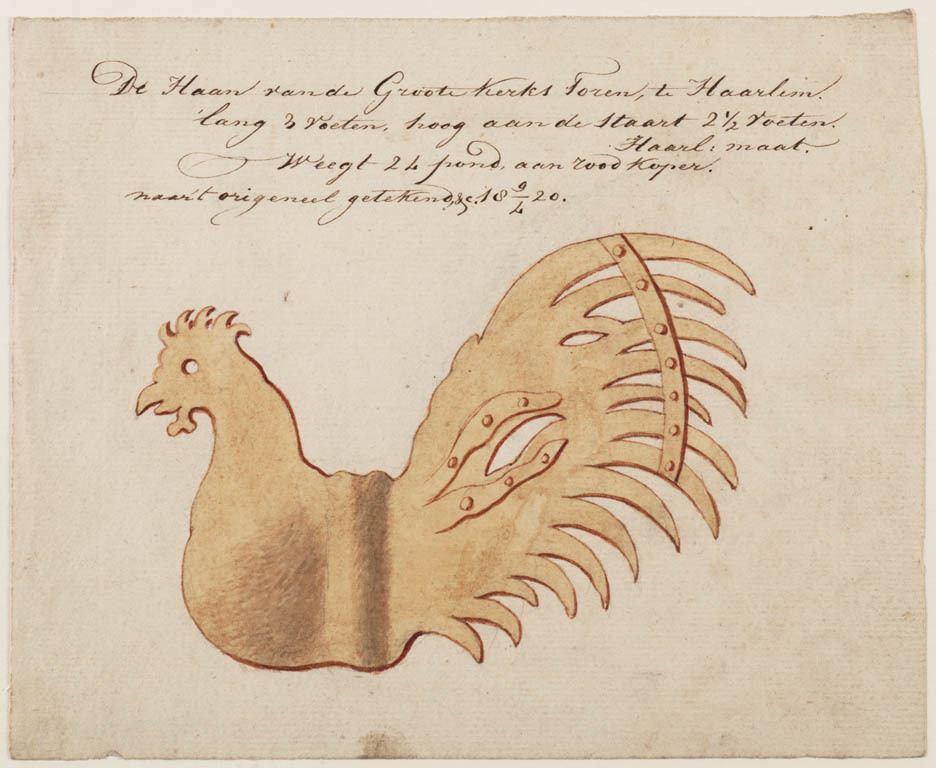 De Haan vande Groote Kerks Toren, te Haarlem.
lang 3 voeten, hoog aan de staart 2 1/2 voeten.
Haarl: maat.
Weegt 24 pond, aan rood koper.
naar't origeneel getekend, &c. 18 9/4 20.